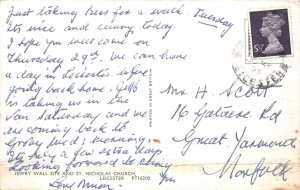 Just taking Bess for a walk
Tuesday
Its nice and sunny today
I hope you will come on
Thursday 29th. We can have
a day in Leicester before
going back home.
is taking us in the
Van on Saturday and we
are coming back to
Good Wed: morning.
only a few extra days
Looking forward to seeing
you
Love Mum
JEWRY WALL SITE AND ST. NICHOLAS CHURCH,
LEICESTER PT16210
Mrs H Scott
16
Great Yarmouth
Norfolk
5½P
LEICESTER